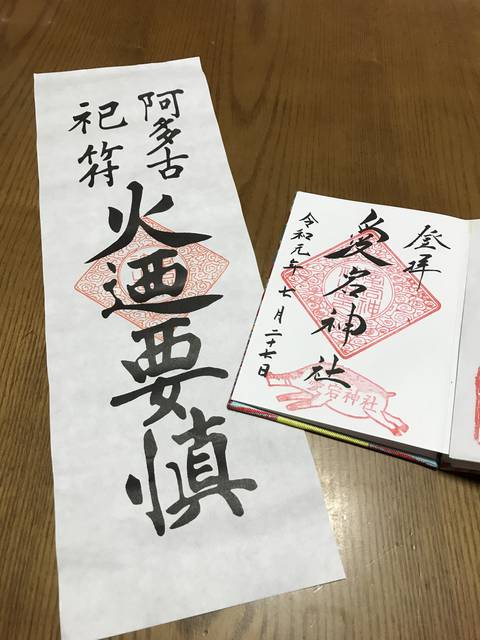 阿多古
祀符
火迺要慎
登拝
愛宕神社
令和元年七月二十七日
宕神社